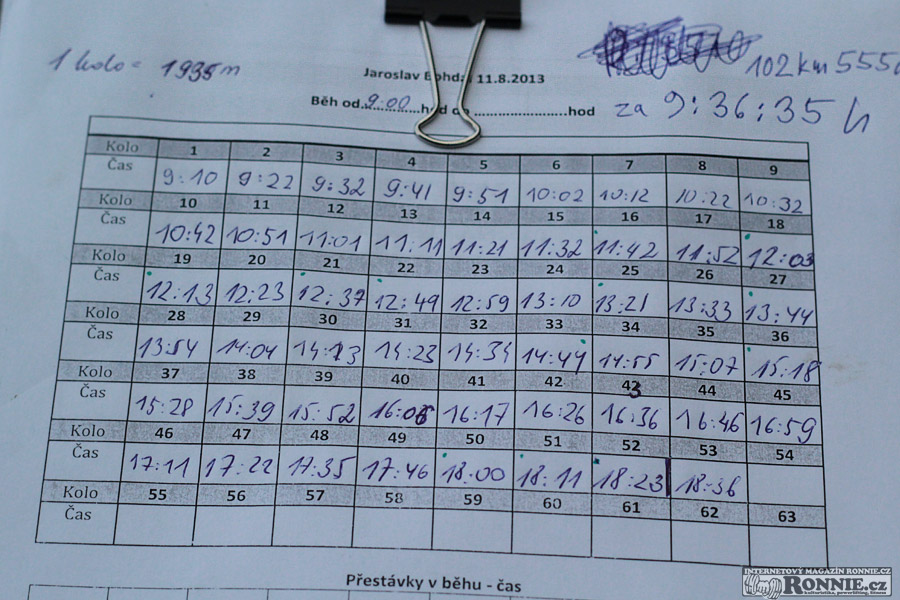 1 kolo = 1935m
102 km 555
Jaroslav 11.8.2013
za 9:36:35 h
Běh od 9:00 hod hod
Kolo 1 2 3 4 5 6 7 8 9
Čas 9:10 9:22 9:32 9:41 9:51 10:02 10:12 10:22 10:32
Kolo 10 11 12 13 14 15 16 17 18
Čas 10:42 10:51 11:01 11:11 11:21 11:32 11:42 11:52 12:03
Kolo 19 20 21 22 23 24 25 26 27
Čas 12:13 12:23 12:37 12:49 12:59 13:10 13:21 13:33 13:44
Kolo 28 29 30 31 32 33 34 35 36
Čas 13:54 14:04 14:13 14:23 14:34 14:44 14:55 15:07 15:18
Kolo 37 38 39 40 41 42 43 44 45
Čas 15:28 15:39 15:52 16:06 16:17 16:26 16:36 16:46 16:59
Kolo 46 47 48 49 50 51 52 53 54
Čas 17:11 17:22 17:35 17:46 18:00 18:11 18:23 18:36
Kolo 55 56 57 58 59 60 61 62 63
Čas
Přestávky v běhu - čas
INTERNETOVÝ MAGAZÍN RONNIE.CZ
RONNIE.cz
kulturistika, powerlifting, fitness